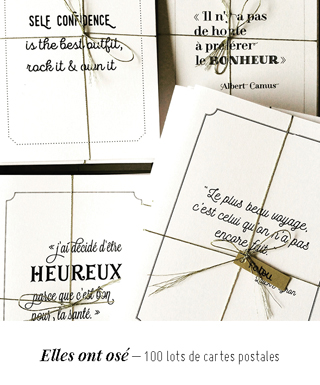 SELF CONFIDENCE
is the best outfit,
rock it & own it
« Il n'y a pas
de honte
à préférer
le BONHEUR »
Albert Camus
« j'ai décidé d'être
HEUREUX
parce que c'est bon
pour la santé. »
"Le plus beau voyage,
c'est celui qu'on n'a pas
encore fait.
Elles ont osé – 100 lots de cartes postales